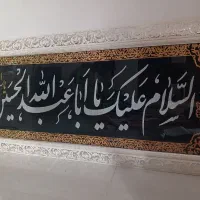 السَّلَامُ عَلَيْكَ يَا أَبَا عَبْدِ اللَّهِ الْحُسَيْن